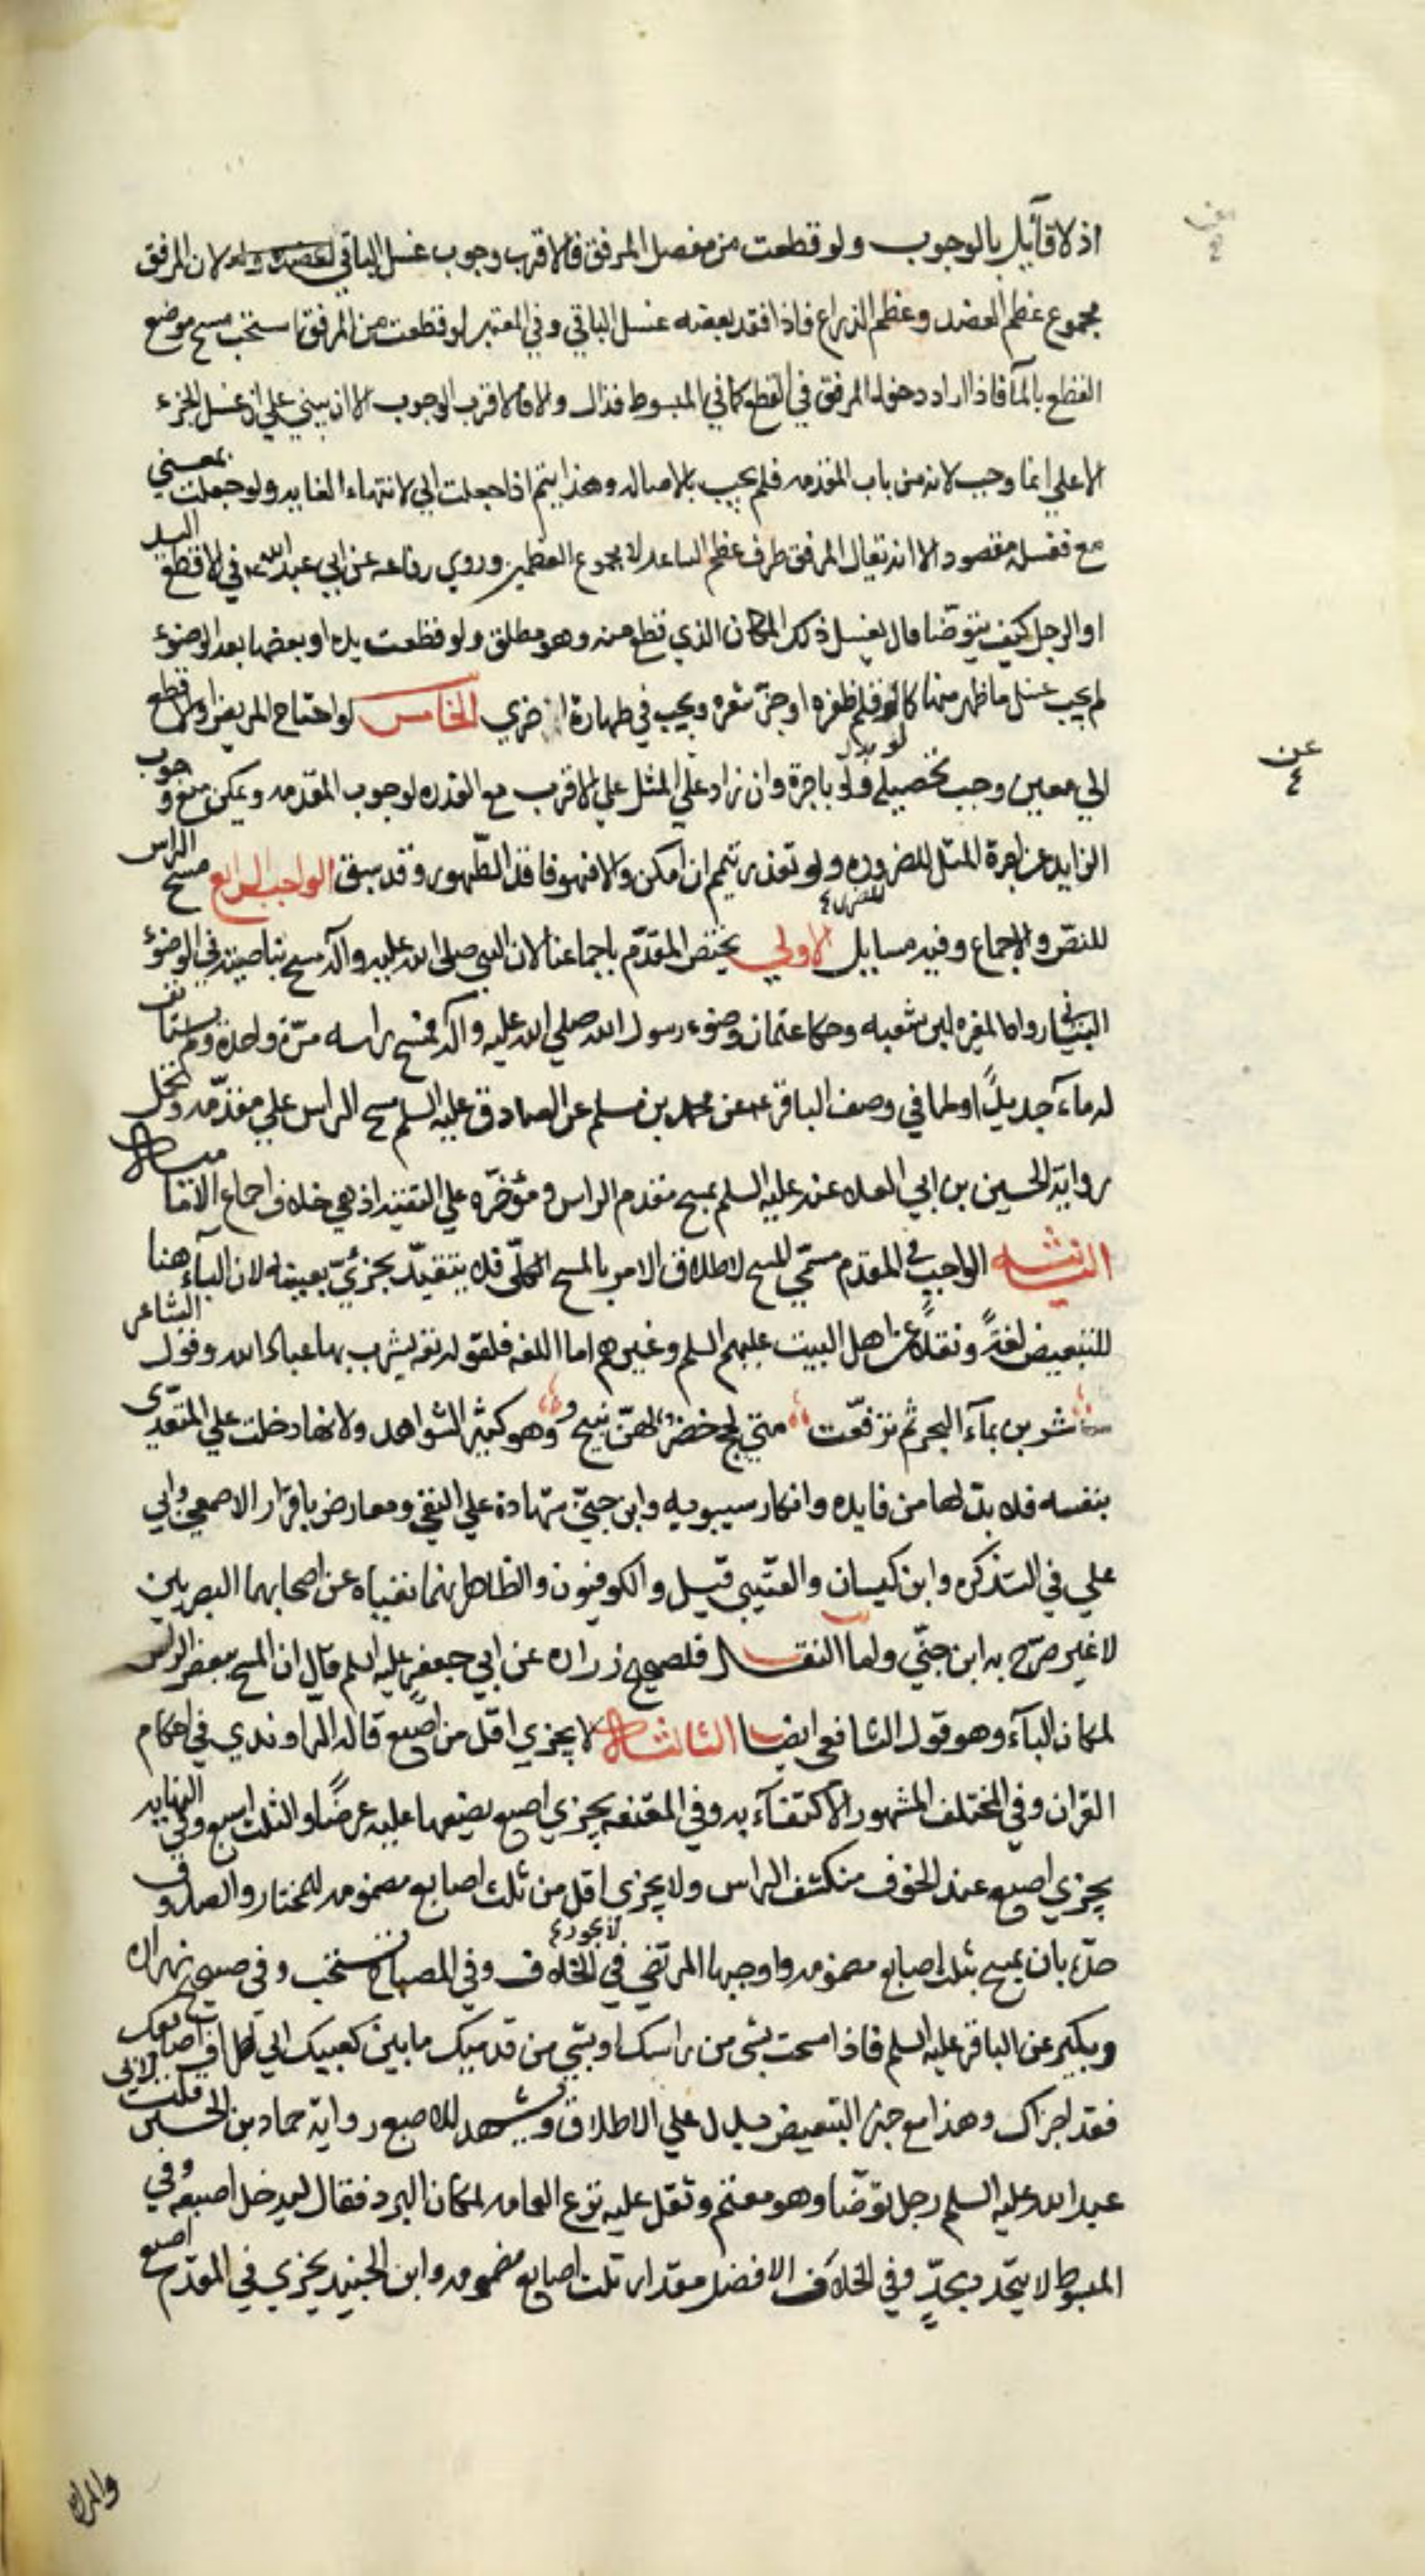 اذ لا قآئل بالوجوب ولو قطعت من مفصل المرفق فالاقرب وجوب غسل الباقي لان المرفق
مجموع عظم العضد وعظم الذراع فاذا فقد بعضه غسل الباقي وفي المعتبر لو قطعت من المرفق استحب مسح موضع
القطع بالمآ فاذا اراد دخول المرفق في القطع كما في المبسوط فذاك والا فالاقرب الوجوب الا ان يبني علي ان غسل الجزء
الاعلي انما وجب لانه من باب المقدمه فلم يجب بالاصاله وهذا يتم اذا جعلت الي لانتهاء الغايه ولو جعلت بمعني
مع فغسله مقصود الا انه يقال المرفق طرف عظم الساعد لا مجموع العظمين وروي رفاعه عن ابي عبد الله ع في الاقطع اليد
او الرجل كيف يتوضا قال يغسل ذلك المكان الذي قطع منه وهو مطلق ولو قطعت يده او بعضها بعد الوضوء
لم يجب غسل ما ظهر منها كما لو قلم ظفره او جز شعره ويجب في طهارة اخري الخامس لو احتاج المريض او الاقطع
الي معين وجب تحصيله ولو باجرة وان زاد علي المثل علي الاقرب مع القدره لوجوب المقدمه ويمكن منع وجوب
الزايد عن اجرة المثل للضروره ولو تعذر تيمم ان امكن والا فهو فاقد الطهور وقد سبق الواجب الرابع مسح الراس
للنص والاجماع وفيه مسايل الاولي يختص المقدم باجماعنا لان النبي صلي الله عليه وآله مسح بناصيته في الوضوء
البياني رواه المغيره ابن شعبه وحكا عثمان وضوء رسول الله صلي الله عليه وآله فمسح براسه مرة واحدة ولم يستانف
له مآء جديداً اوطا في وصف الباقر ع عن محمد بن مسلم عن الصادق عليه السلم مسح الراس علي مقدمه وتحمل
رواية الحسين بن ابي العلا عنه عليه السلم بمسح مقدم الراس ومؤخره علي التقيه اذ هي خلاف اجماع الاماميه
الثانيه الواجب في المقدم مسمي المسح لاطلاق الامر بالمسح الكلي فلا يتقيد بجزئي بعينه لان البآء هنا
للتبعيض لغةً ونقلاً عن اهل البيت عليهم السلم وغيرهم اما اللغه فلقوله تعه يشرب بها عباد الله وقول الشاعر
شربن بمآء البحر ثم ترفعت متي لجج خضر لهن نئيج وهو كثير الشواهد ولانها دخلت علي المتعدي
بنفسه فلا بد لها من فايده وانكار سيبويه وابن جني شهادة علي النفي ومعارض باقرار الاصمعي وابي
علي في التذكره وابن كيسان والقتيبي قيل والكوفيون والظاهر انهما نفياه عن اصحابهما البصريين
لا غير صرح به ابن جني واما النقل فلصحيح زراره عن ابي جعفر عليه السلم قال ان المسح ببعض الراس
لمكان البآء وهو قول الشافعي ايضا الثالثه لا يجزي اقل من اصبع قاله الراوندي في احكام
القران وفي المختلف المشهور الاكتفآء به وفي المقنعه يجزي اصبع يضعها عليه عرضًا والثلث اسبغ وفي النهايه
يجزي اصبع عند الخوف من كشف الراس ولا يجزي اقل من ثلث اصابع مضمومه للمختار والصدوق
حدّه بان يمسح بثلث اصابع مضمومه واوجبها المرتضي في الخلاف وفي المصباح يستحب وفي صحيح زراره
وبكير عن الباقر عليه السلم فاذا مسحت بشي من راسك او بشي من قدميك ما بين كعبيك الي اطراف اصابعك
فقد اجزاك وهذا مع خبر التبعيض يدل علي الاطلاق ويشهد للاصبع رواية حماد بن الحسين قلت لابي
عبد الله عليه السلم رجل توضا وهو معتم وثقل عليه نزع العمامه لمكان البرد فقال ليدخل اصبعه وفي
المبسوط لا يتحد بحدٍّ وفي الخلاف الافضل مقدار ثلث اصابع مضمومه وابن الجنيد يجزي في المقدم اصبع